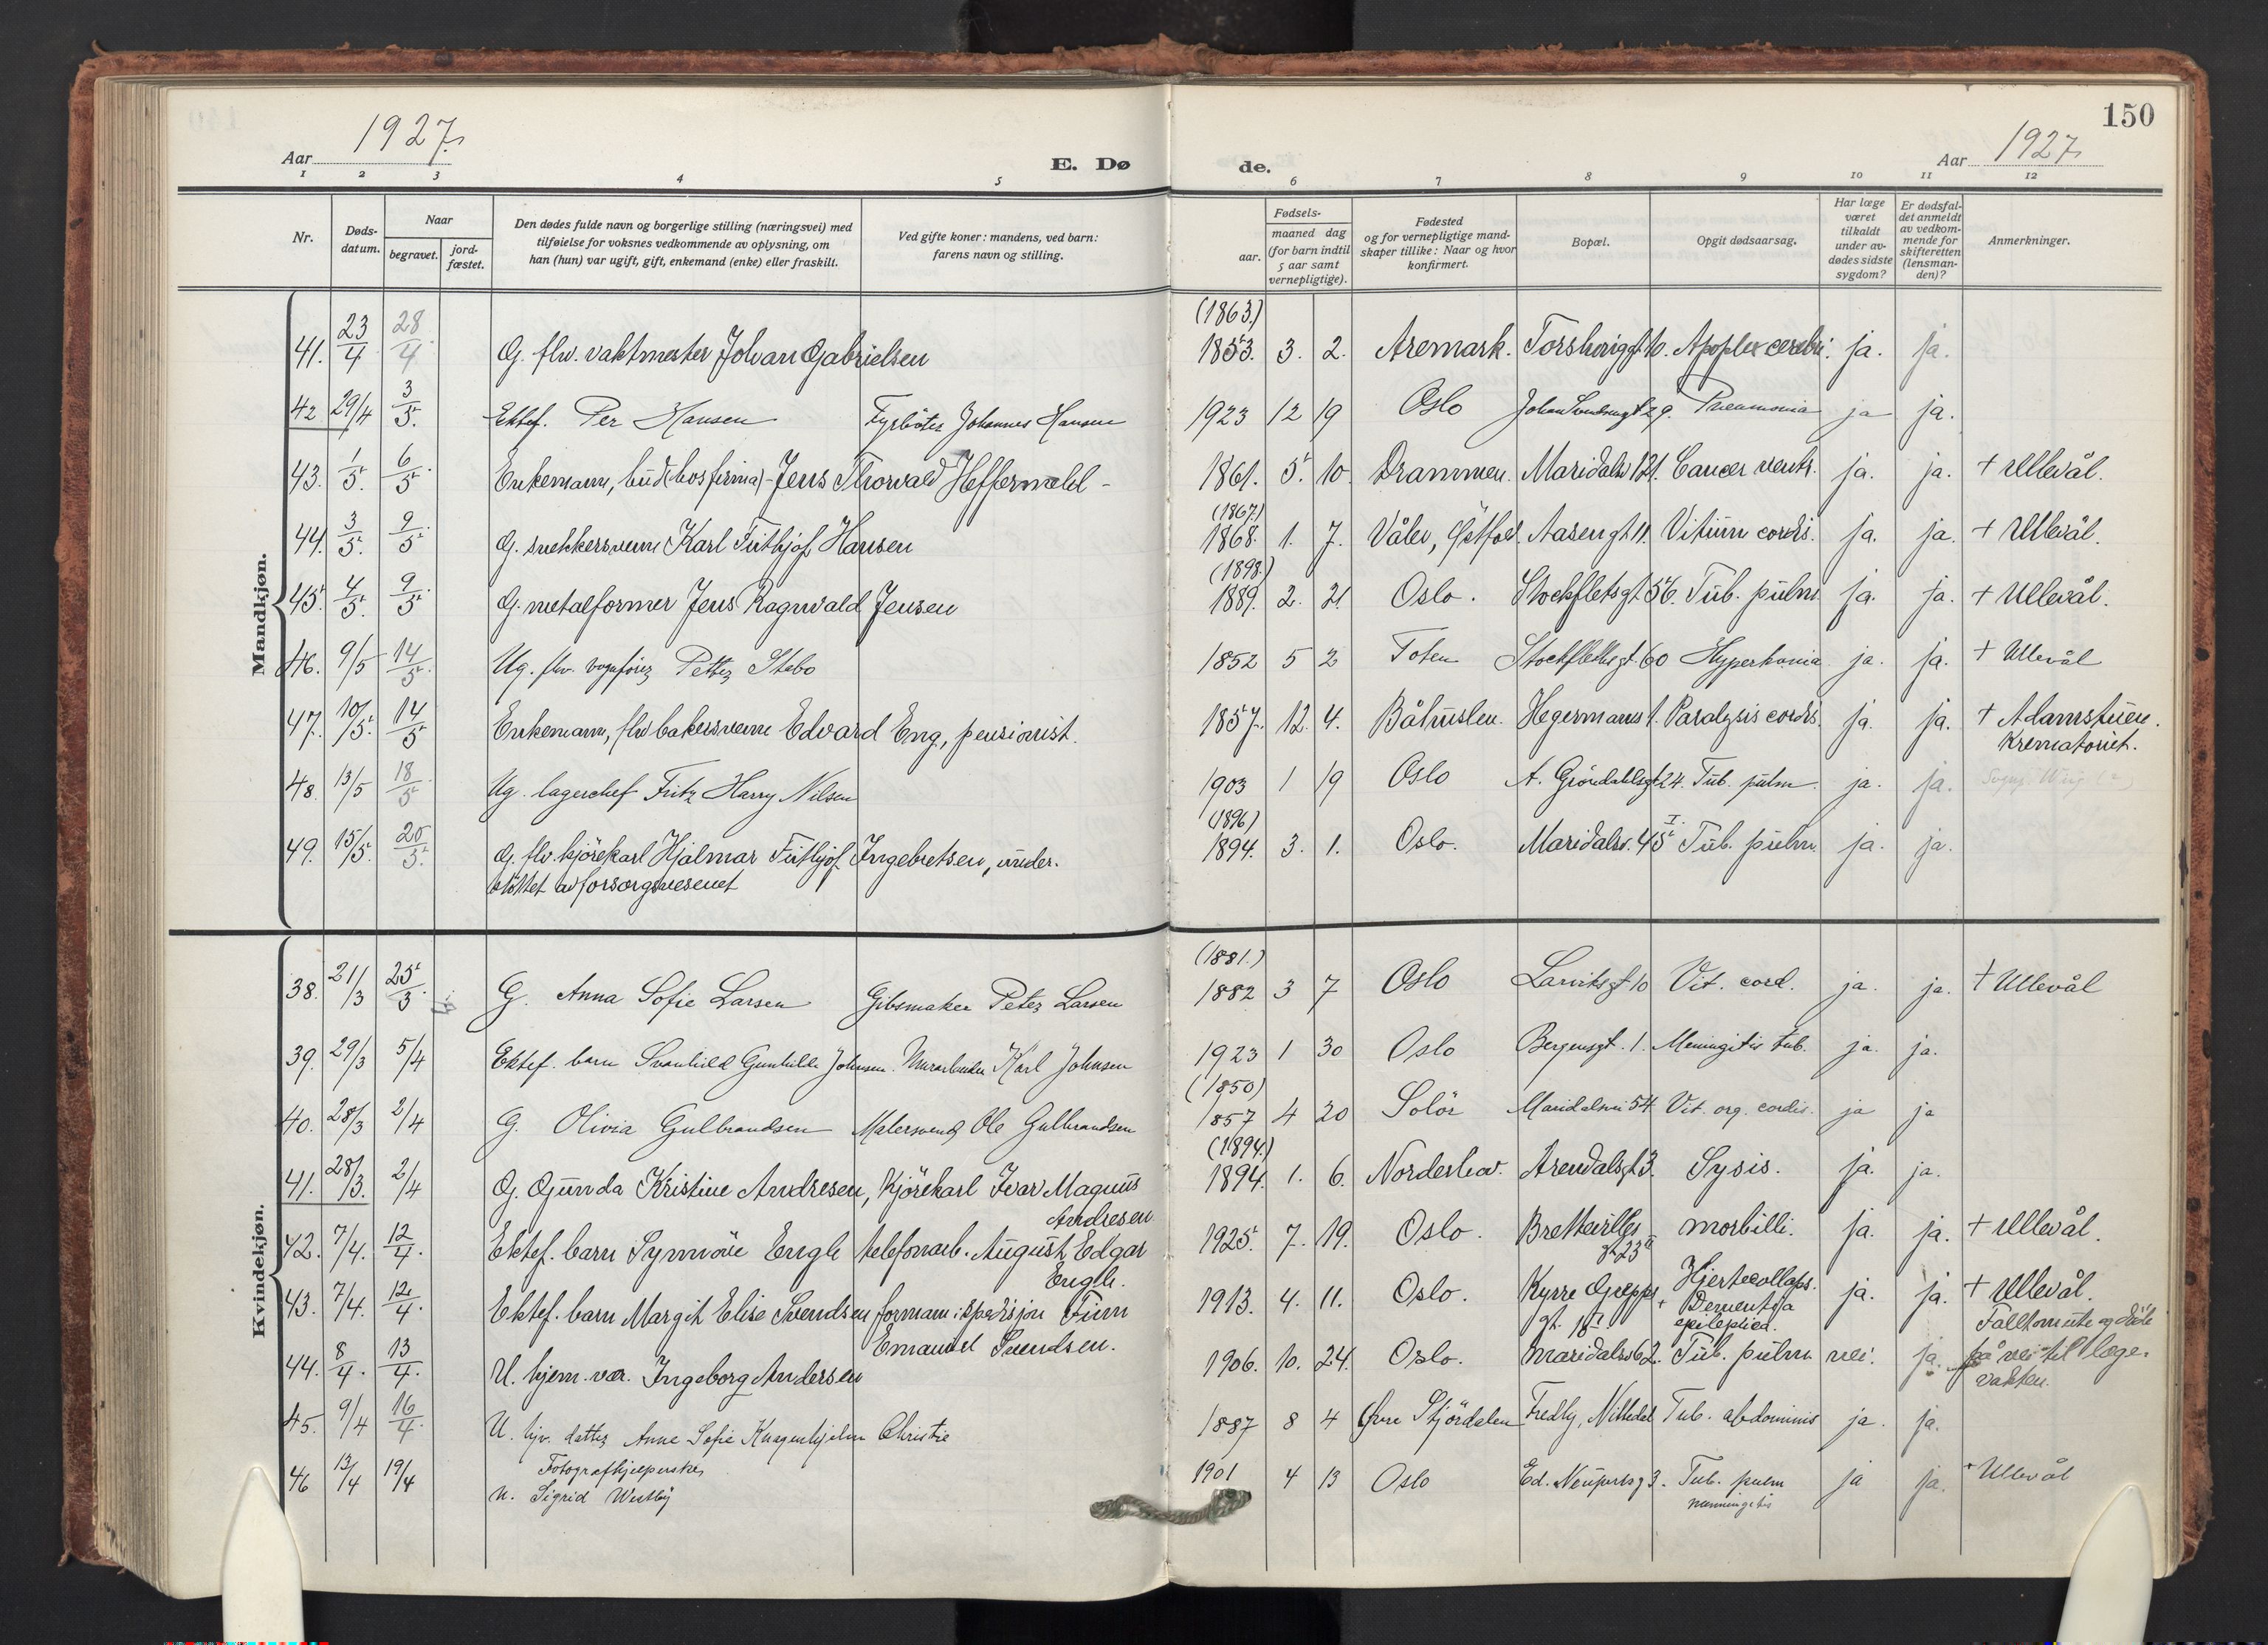 150
Aar 1927.
E. Dø
de.
Aar 1927.
1 2 3 4 5 6 7 8 9 10 11 12
Nr.
Døds-
datum.
Naar
begravet.
jord-
fæstet.
Den dødes fulde navn og borgerlige stilling (næringsvei) med
tilføielse for voksnes vedkommende av oplysning, om
han (hun) var ugift, gift, enkemand (enke) eller fraskilt.
Ved gifte koner: mandens, ved barn:
farens navn og stilling.
Fødsels-
aar.
maaned dag
(for barn indtil
5 aar samt
vernepligtige).
Fødested
og for vernepligtige mand-
skaper tillike: Naar og hvor
konfirmert.
Bopæl.
Opgit dødsaarsag.
Har læge
været
tilkaldt
under av-
dødes sidste
sygdom?
Er dødsfal-
det anmeldt
av vedkom-
mende for
skifteretten
(lensman-
den)?
Anmerkninger.
Mandkjøn.
(1863.)
41. 23/4 28/4 G. flv. vaktmester Johan Gabrielsen 1853. 3. 2. Aremark. Torshauggt 10. Apoplex cerebri. ja. ja.
42 29/4 3/5. Ektef. Per Hansen Fyrbøter Johannes Hansen 1923 12 19 Oslo Johan Svendsensgt 29. Pneumonia ja ja.
43. 1/5. 6/5. Enkemann, bud (hos firma) - Jens Thorvald Heffermehl - 1861. 5. 10. Drammen. Maridalsv 121. Cancer ventr. ja. ja. + Ullevål.
(1867.)
44. 3/5. 9/5. G. snekkersvenn Karl Frithjof Hansen 1868. 1. 7. Våler, Østfold. Aasengt 11. Vitium cordis. ja. ja. + Ullevål.
(1898.)
45. 4/5. 9/5. G. metalformer Jens Ragnvald Jensen 1889. 2. 21. Oslo. Stockfletsgt. 56. Tub. pulm ja. ja. + Ullevål.
46. 9/5 14/5 Ug. flv. vognfører Petter Stebo 1852 5 2 Toten Stockflethsgt. 60 Hypertonia ja. ja. + Ullevål
47. 10/5. 14/5 Enkemann, flv bakersvenn Edvard Eng, pensionist. 1857. 12. 4. Båhuslen. Hegermanns 1. Paralysis cordis. ja. ja. + Adamstuen.
Krematoriet.
48. 13/5 18/5 Ug. lagerchef Fritz Harry Nilsen 1903 1 19 Oslo A. Grøndahlsgt 24. Tub. pulm. ja. ja.
(1896)
49. 15/5. 20/5. G. flv. kjørekarl Hjalmar Frithjof Ingebretsen, under- 1894. 3. 1. Oslo. Maridalsv. 45 I. Tub. pulm. ja. ja.
støttet av forsorgsvesenet
Kvindekjøn.
(1881.)
38. 21/3 25/3. G. Anna Sofie Larsen Gibsmaker Peter Larsen 1882 3 7 Oslo Larviksgt 10 Vit. cord. ja. ja. + Ullevål
39. 29/3 5/4 Ektef. barn Svanhild Gunhilde Johnsen. Murarbeider Karl Johnsen 1923 1 30 Oslo Bergensgt. 1. Meningitis tub. ja. ja.
(1850)
40. 28/3 2/4 G. Olivia Gulbrandsen Malersvend Ole Gulbrandsen 1857 4 20 Solør Maridalsvei 54 Vit. org. cordis. ja ja
(1894.)
41. 28/3. 2/4 G. Gunda Kristine Andresen, Kjørekarl Ivar Magnus 1894. 1. 6. Norderhov. Arendalsgt 3. Sysis. ja. ja.
Andresen
42. 7/4. 12/4. Ektef. barn Synnøve Engh telefonarb. August Edgar 1925. 7. 19. Oslo. Brettevilles morbilli. ja. ja. + Ullevål.
gt 23 II
Engh.
43. 7/4. 12/4. Ektef. barn Margit Elise Svendsen formann i spedisjon Finn 1913. 4. 11. Oslo. Kyrre Grepps Hjertecollaps. ja. ja. + Ullevål.
gt. 15 I + Dementia
epileptica.
Emanuel Svendsen.
44. 8/4. 13/4. U. hjem. vær. Ingeborg Andersen 1906. 10. 24. Oslo. Maridalsv 62. Tub. pulm nei. ja. Falt om ute og døde
på vei til læge-
vakten.
45. 9/4 16/4. U. hjv. datter Anne Sofie Knagenhjelm Christie 1887 8 4 Øvre Stjørdalen Fredly, Nittedal Tub. abdominis ja. ja.
Fotografhjelperske
46 13/4 19/4 U. Sigrid Westby 1901 4 13 Oslo Ed. Neupertsg 3. Tub. pulm ja ja. + Ullevål
menningitis